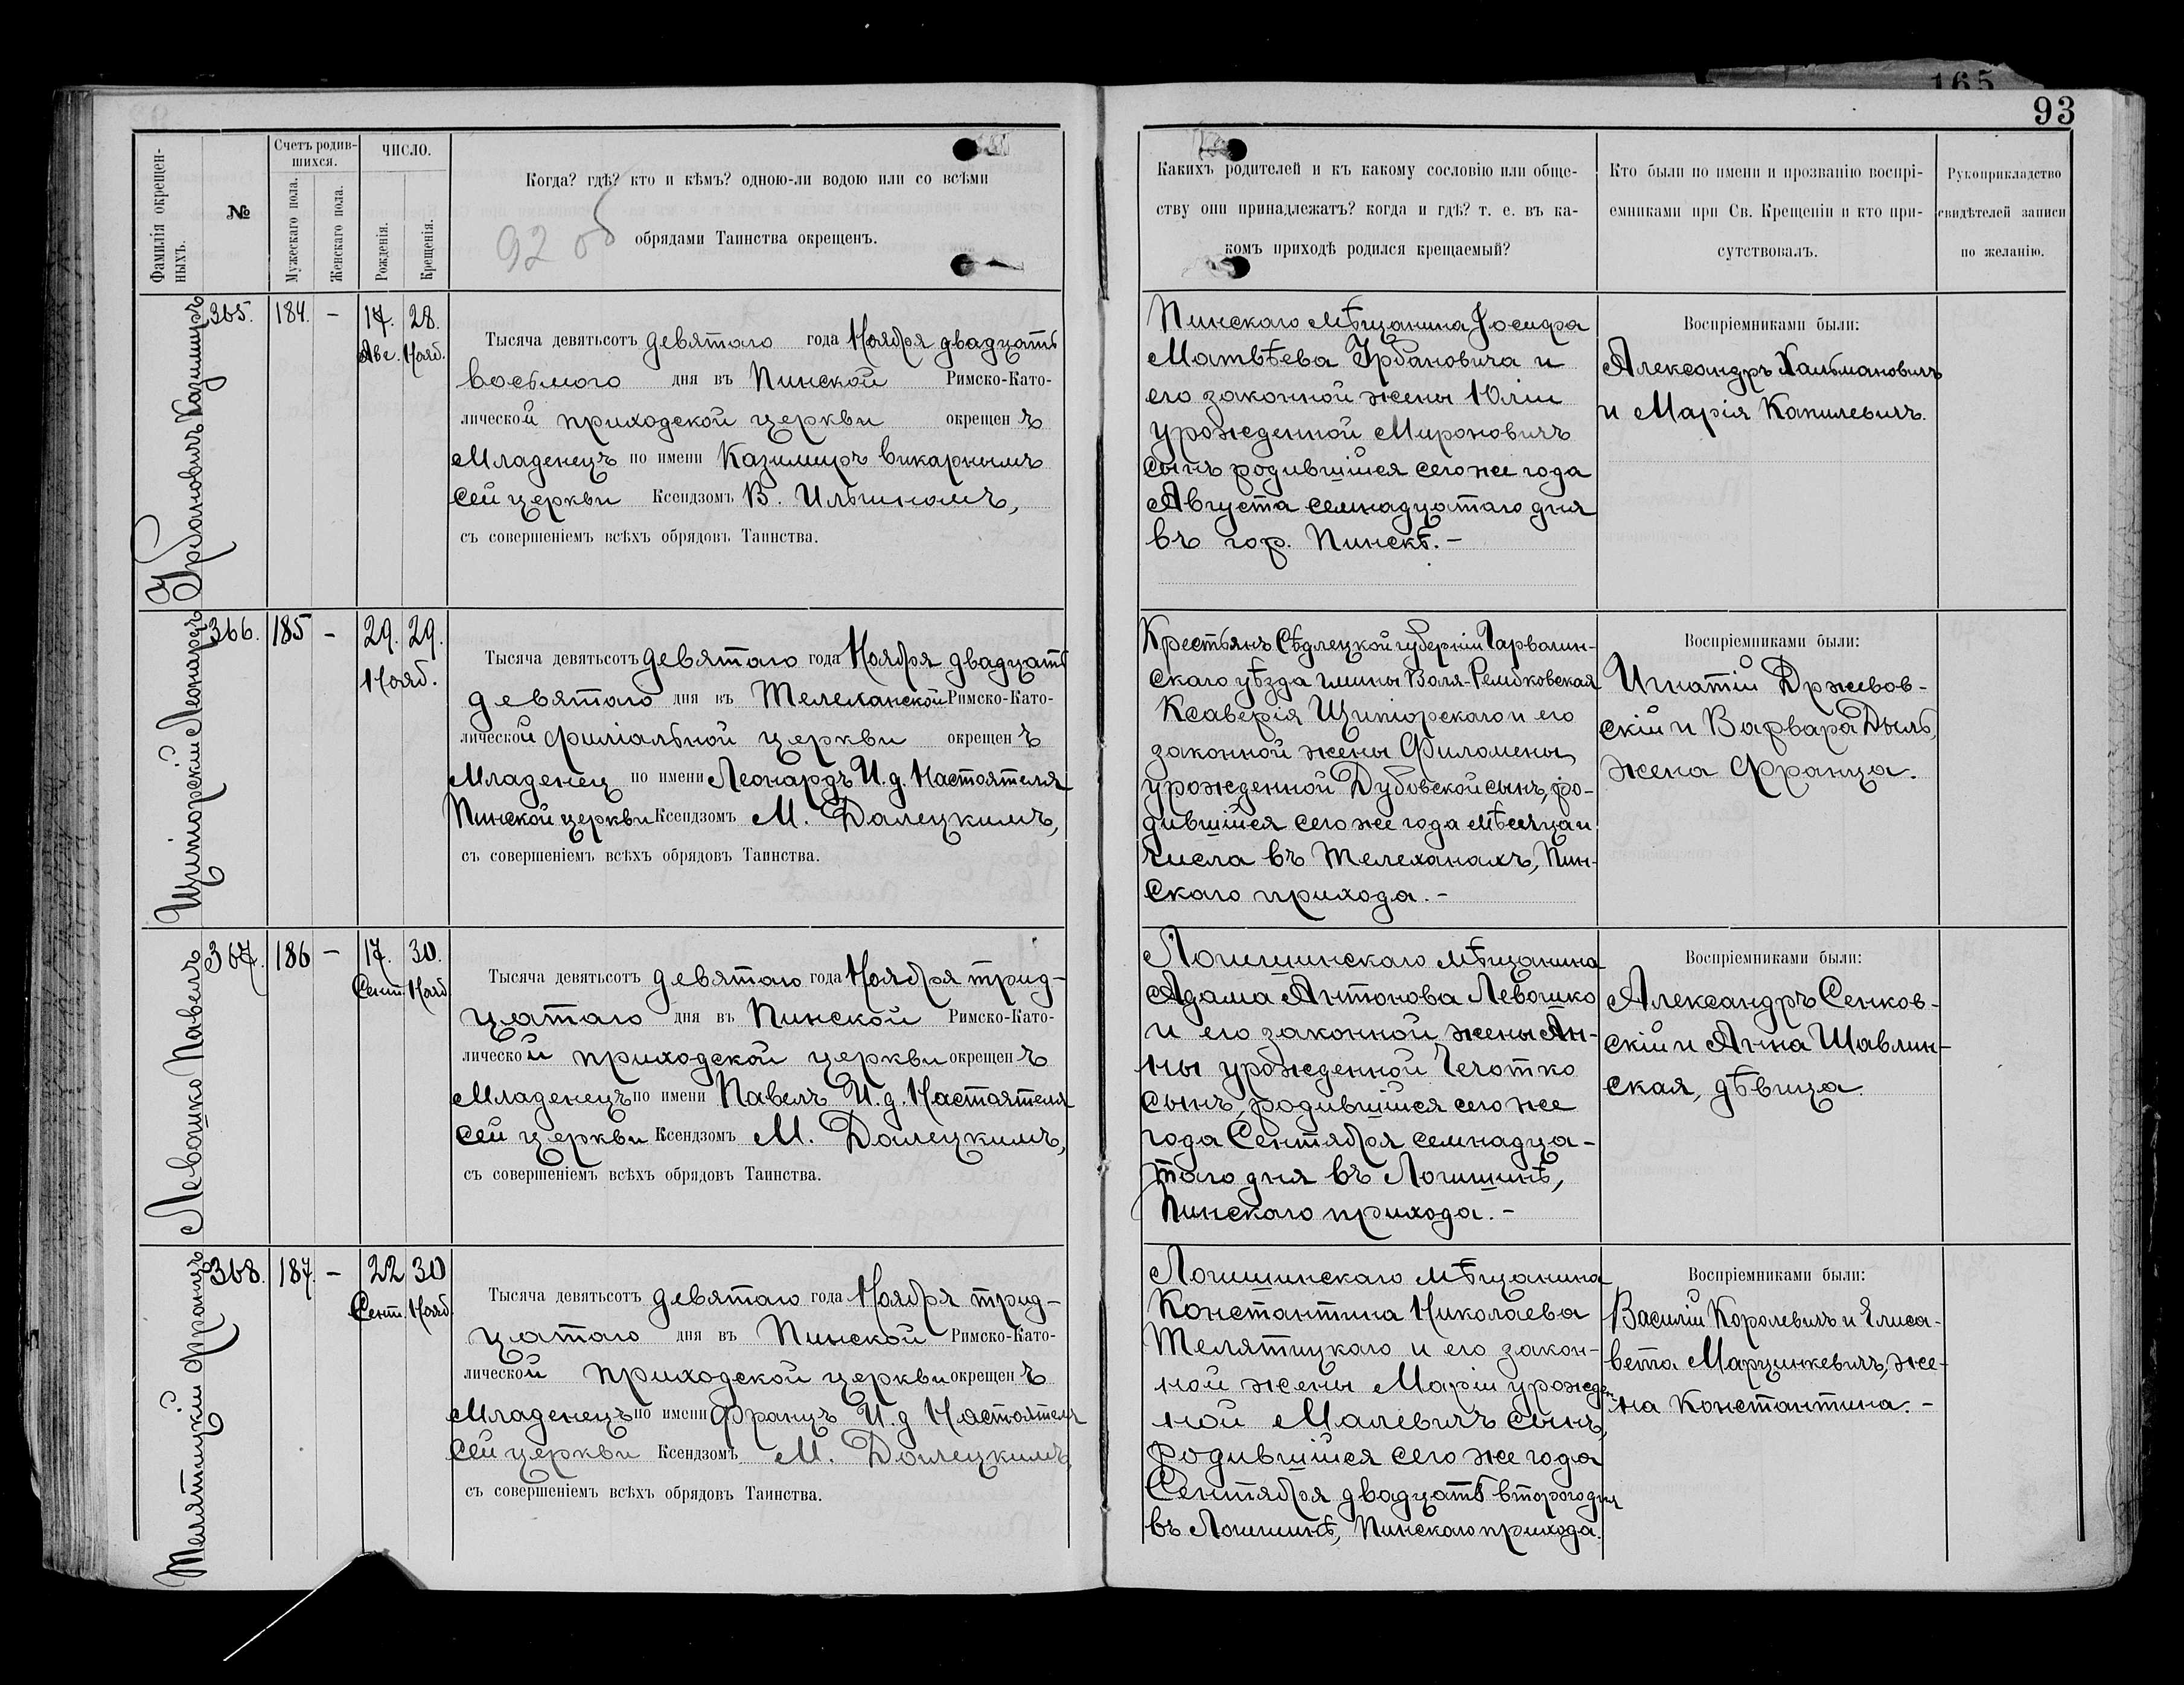 165
93
Фамилія окрещен-
ныхъ.
№
Счетъ родив-
шихся.
Мужескаго пола.
Женскаго пола.
ЧИСЛО.
Рожденія.
Крещенія.
Когда? гдѣ? кто и кѣмъ? одною-ли водою или со всѣми
обрядами Таинства окрещенъ.
92 об
Какихъ родителей и къ какому сословію или обще-
ству они принадлежатъ? когда и гдѣ? т. е. въ ка-
комъ приходѣ родился крещаемый?
Кто были по имени и прозванію воспрі-
емниками при Св. Крещеніи и кто при-
сутствовалъ.
Рукоприкладство
свидѣтелей записи
по желанію.
Урбановичъ Казимиръ
365. 184. – 17. 28.
Авг. Нояб.
Тысяча девятьсотъ девятаго года Ноября двадцать
восьмого дня въ Пинской Римско-Като-
лической приходской церкви окрещенъ
Младенецъ по имени Казимиръ викарнымъ
сей церкви Ксендзомъ В. Ильгиномъ,
съ совершеніемъ всѣхъ обрядовъ Таинства.
Пинскаго мѣщанина Іосифа
Матвѣева Урбановича и
его законной жены Юліи
урожденной Мироновичъ
сынъ родившійся сего же года
Августа семнадцатаго дня
въ гор. Пинскѣ. –
Воспріемниками были:
Александръ Хальмановичъ
и Марія Капилевичъ.
Щипіорскій Леонардъ
366. 185 – 29. 29.
Нояб.
Тысяча девятьсотъ девятаго года Ноября двадцать
девятаго дня въ Телеханской Римско-Като-
лической филіальной церкви окрещенъ
Младенец по имени Леонардъ И. д. Настоятеля
Пинской церкви Ксендзомъ М. Далецкимъ,
съ совершеніемъ всѣхъ обрядовъ Таинства.
Крестьянъ Сѣдлецкой губерніи Гарволин-
скаго уѣзда гмины Воля-Рембковская
Ксаверія Щипіорскаго и его
законной жены Филомены
урожденной Дубовской сынъ, ро-
дившійся сего же года мѣсяца и
числа въ Телеханахъ, Пин-
скаго прихода. –
Воспріемниками были:
Игнатій Држевов-
скій и Варвара Дыль,
жена Франца.
Левошко Павелъ
367. 186 – 17. 30.
Сент. Нояб
Тысяча девятьсотъ девятаго года Ноября трид-
цатаго дня въ Пинской Римско-Като-
лической приходской церкви окрещенъ
Младенецъ по имени Павелъ И. д. Настоятеля
сей церкви Ксендзомъ М. Далецкимъ,
съ совершеніемъ всѣхъ обрядовъ Таинства.
Логишинскаго мѣщанина
Адама Антонова Левошко
и его законной жены Ан-
ны урожденной Чечотко
сынъ, родившійся сего же
года Сентября семнадца-
таго дня въ Логишинѣ,
Пинскаго прихода. –
Воспріемниками были:
Александръ Сенков-
скій и Анна Шавлин-
ская, дѣвица.
Телятицкій Францъ
368. 187. – 22 30
Сент. Нояб
Тысяча девятьсотъ девятаго года Ноября трид-
цатаго дня въ Пинской Римско-Като-
лической приходской церкви окрещенъ
Младенецъ по имени Францъ И. д Настоятеля
сей церкви Ксендзомъ М. Далецкимъ,
съ совершеніемъ всѣхъ обрядовъ Таинства.
Логишинскаго мѣщанина
Константина Николаева
Телятицкаго и его закон-
ной жены Маріи урожден
ной Малевичъ сынъ,
родившійся сего же года
Сентября двадцать второго дня
въ Логишинѣ, Пинскаго прихода.
Воспріемниками были:
Василій Королевичъ и Елиса-
вета Марцинкевичъ, же-
на Константина. –